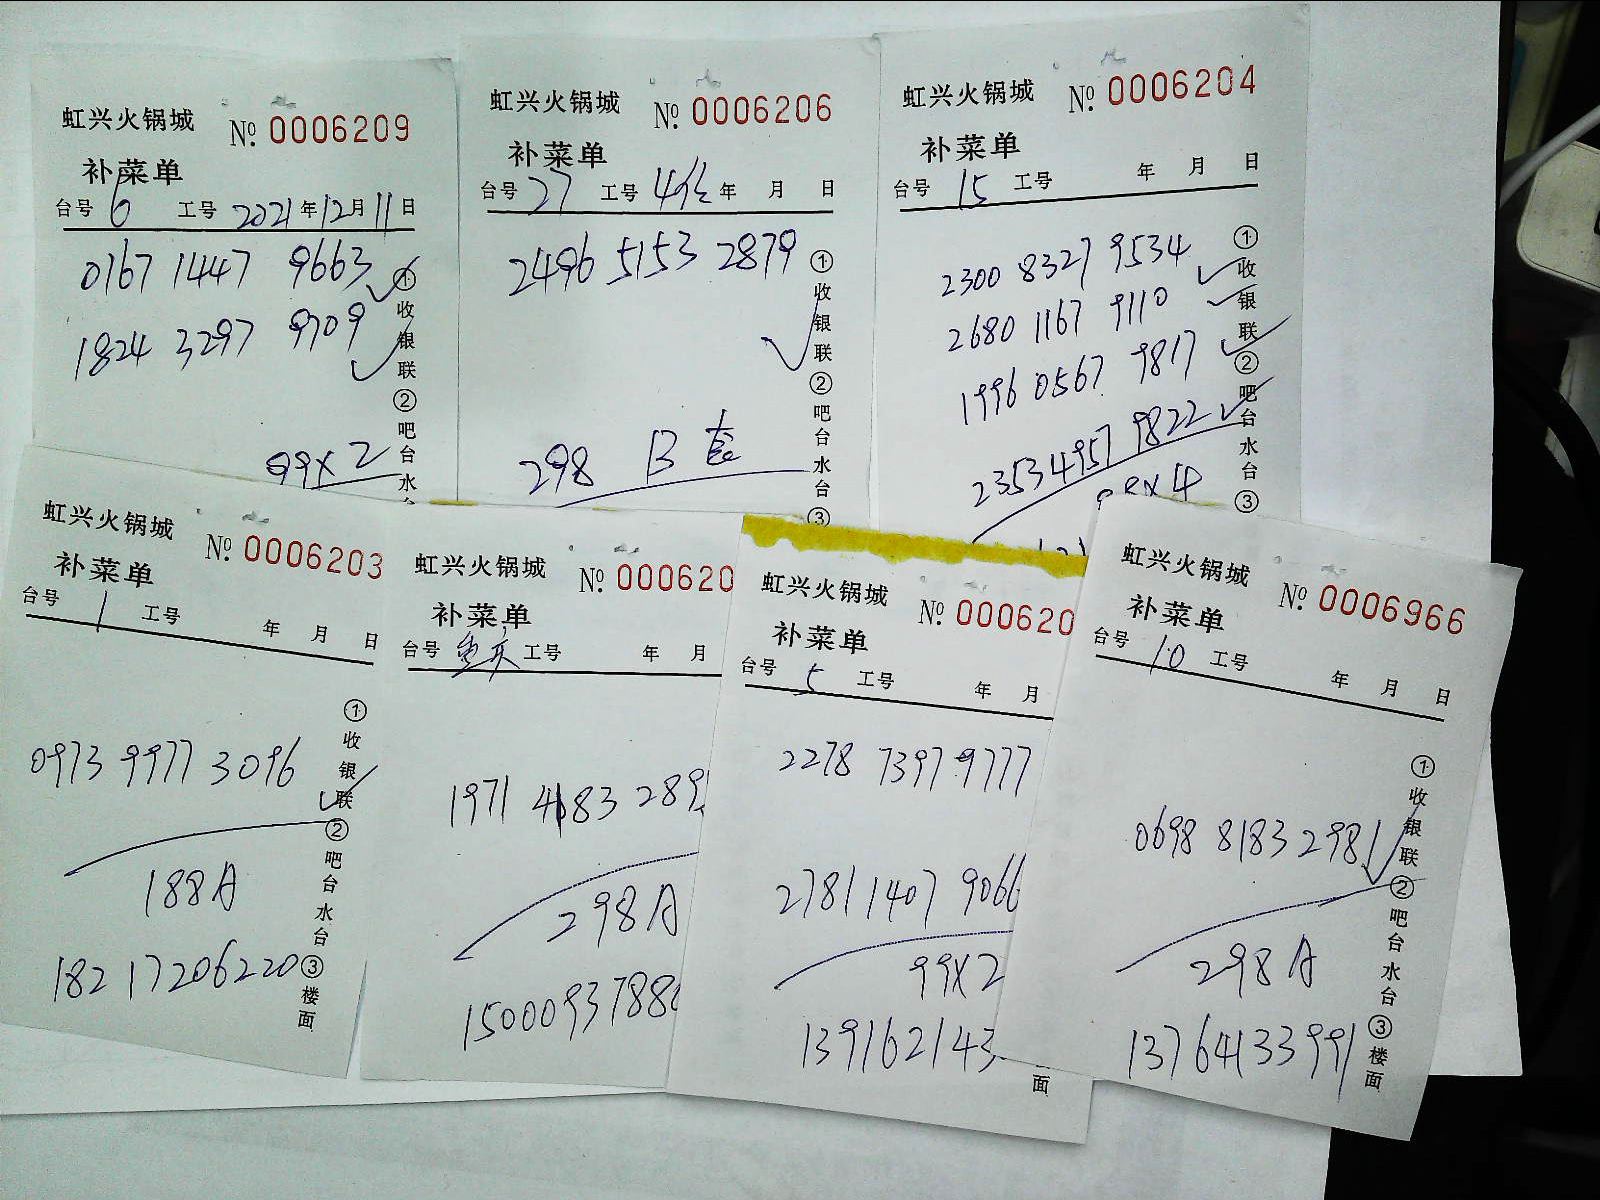 虹兴火锅城 №. 0006209
补菜单
台号 6 工号 2021年12月11日
0167 1447 9663
1824 3297 9709
99x2
①收银联②吧台水台
虹兴火锅城 №. 0006206
补菜单
台号 27 工号 年 月 日
2496 5153 2879
298 B套
①收银联②吧台水台③
虹兴火锅城 №. 0006204
补菜单
台号 15 工号 年 月 日
2300 8327 9534
2680 1167 9110
1996 0567 9817
2353 4957 9822
99x4
①收银联②吧台水台③
虹兴火锅城 №. 0006203
补菜单
台号 1 工号 年 月 日
0973 9977 3096
188A
18217206220
①收银联②吧台水台③楼面
虹兴火锅城 №. 000620
补菜单
台号 重庆 工号 年 月
1971 4183 289
298A
1500093788
虹兴火锅城 №. 000620
补菜单
台号 5 工号 年 月
2278 7397 9777
2781 1407 9066
99x2
139162143
面
虹兴火锅城 №. 0006966
补菜单
台号 10 工号 年 月 日
0698 8183 2981
298A
13764133991
①收银联②吧台水台③楼面